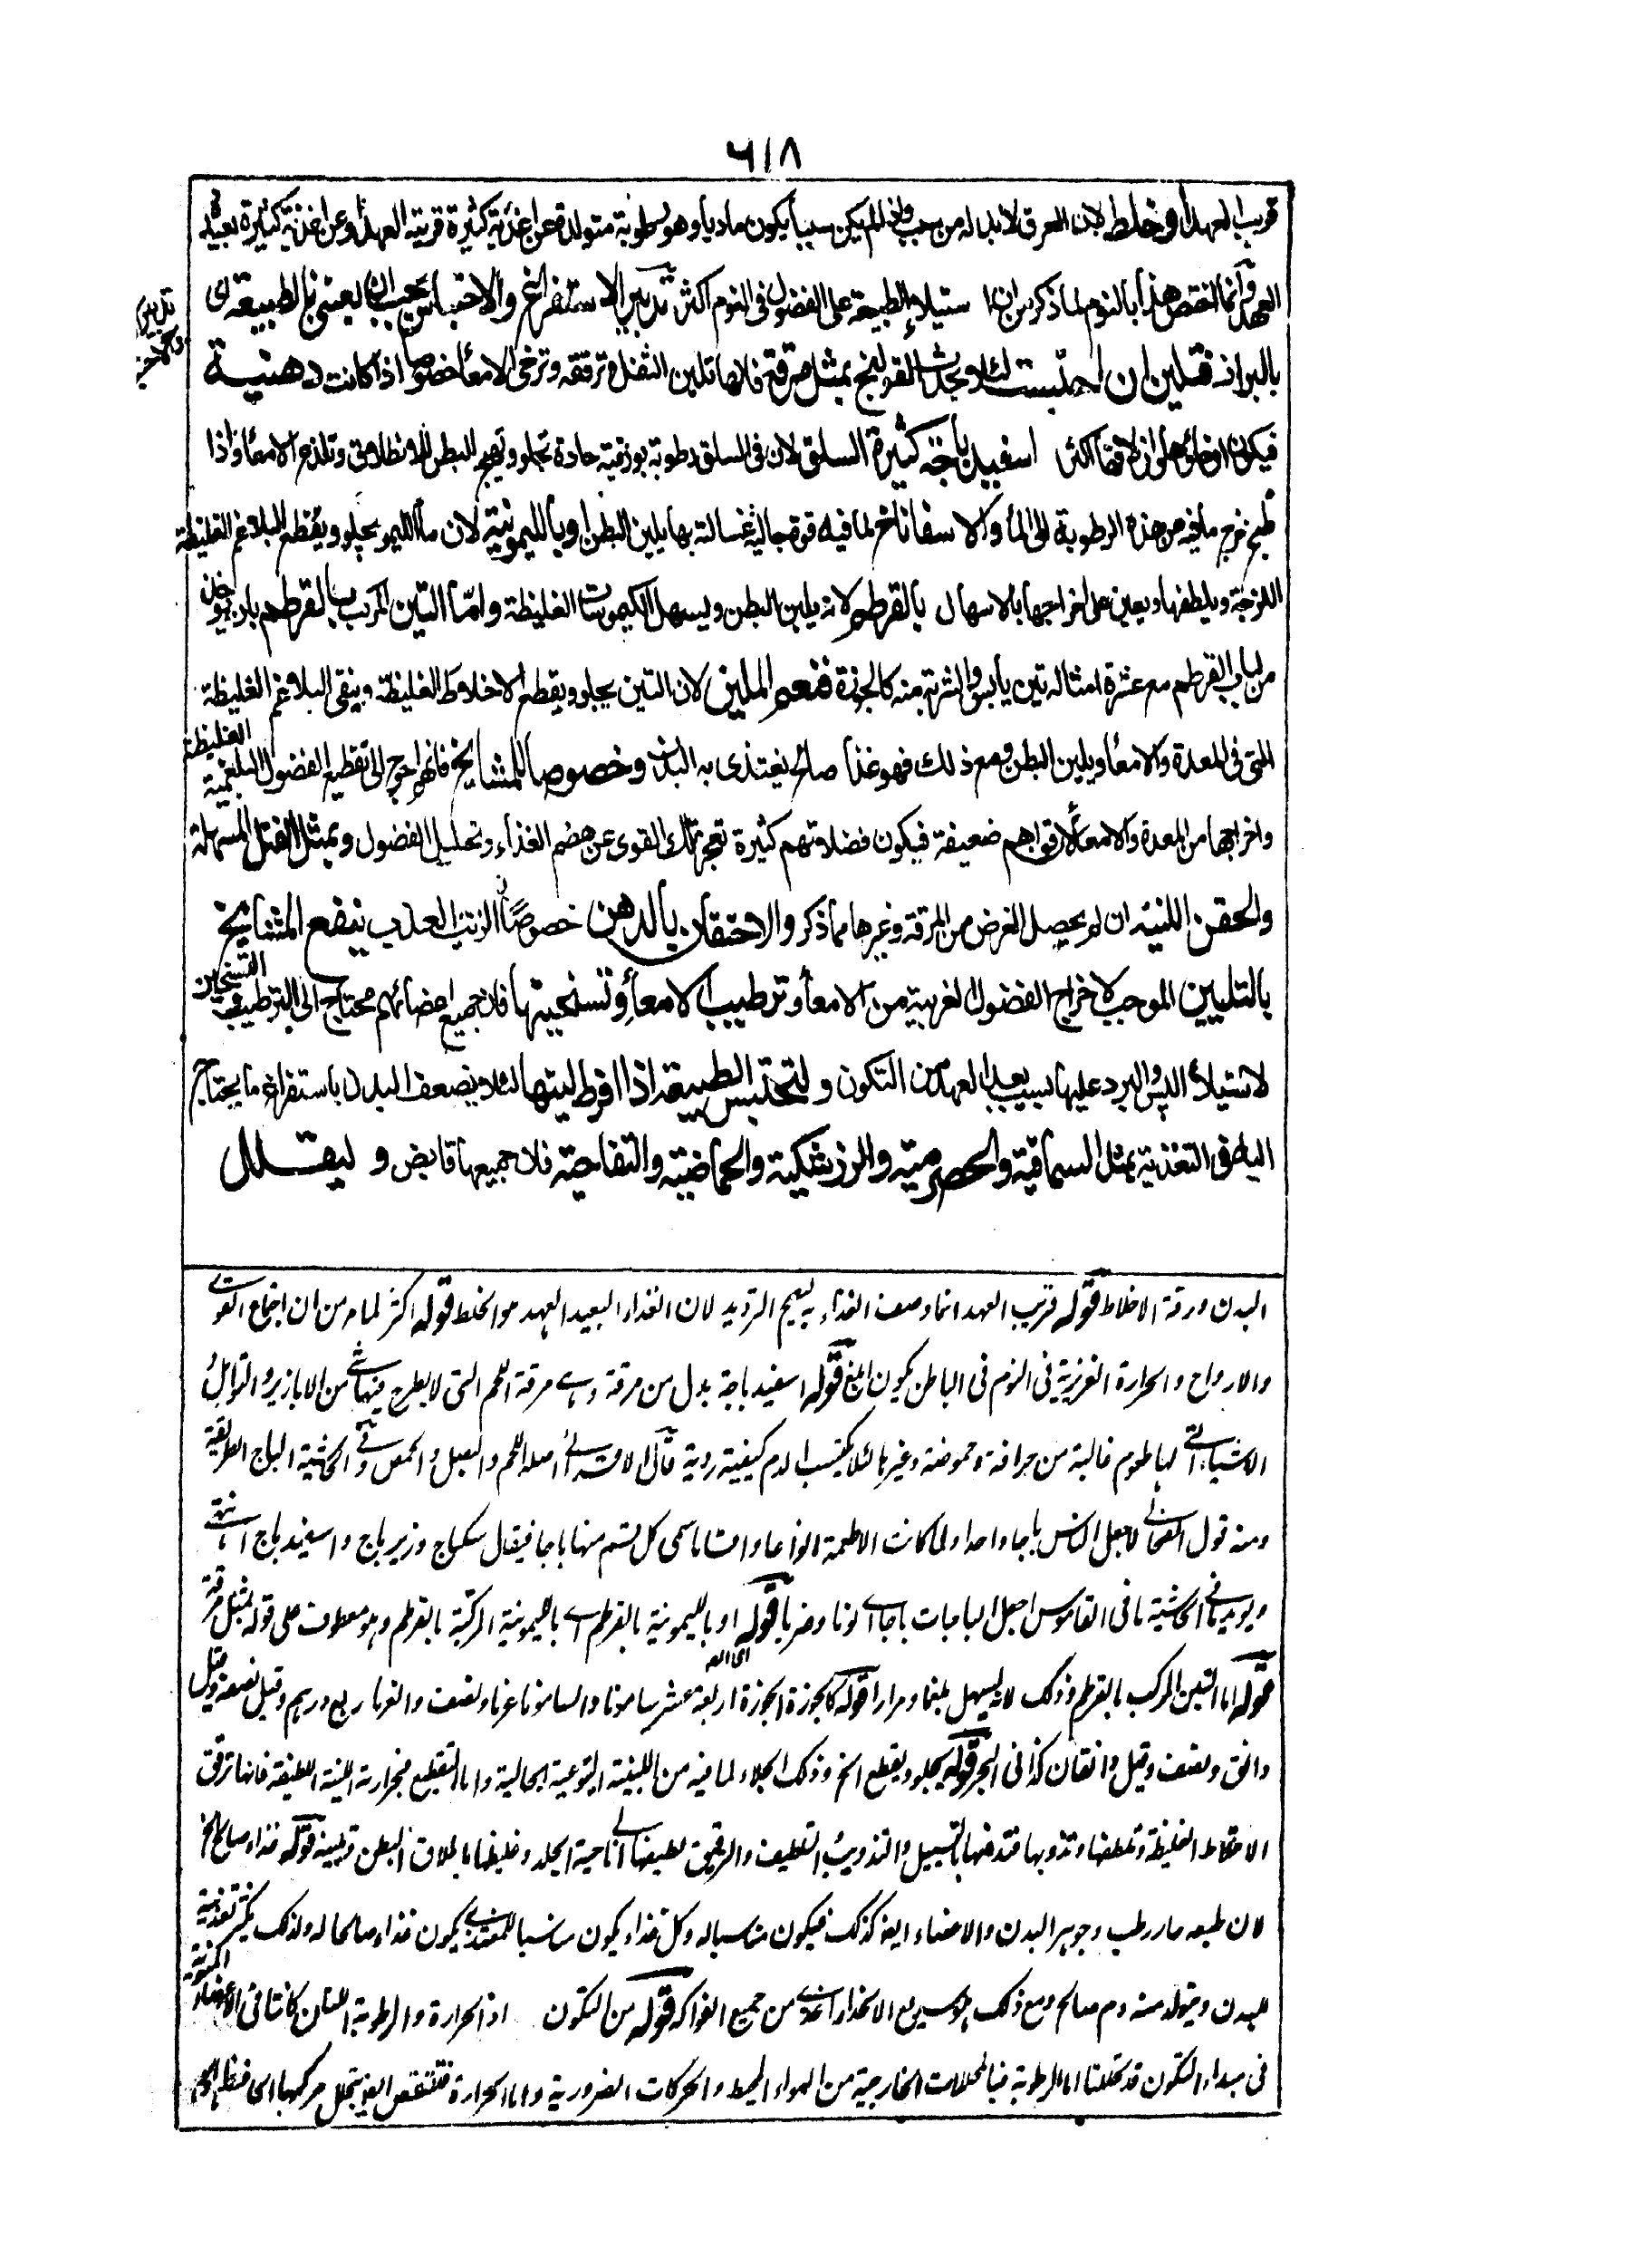 ٦١٨
قريب العهد او خلط لان العرق لا بد له من سبب واذا لم يكن سببا يكون ماديا وهو رطوبة متولدة عن اغذية كثيرة قريبة العهد او عن اغذية كثيرة بعيدة
العهد وانما اختص هذا بالنوم لما ذكر من ان استيلاء الطبيعة على الفضول في النوم اكثر تدبير الاستفراغ والاحتباس يجب ان يعتنى بالطبيعة اى
بالبراز فتلين ان احتبست لئلا يحدث القولنج بمثل مرقة فانها تلين الثفل وترققه وترخى الامعاء خصوصا اذا كانت دهنية
فيكون ارخاؤها وازلاقها اكثر اسفيدباجة كثيرة السلق لان فى السلق رطوبة بورقية حادة تجلو وتهيج البطن للانطلاق وتلذع الامعاء واذا
طبخ خرج ما فيه من هذه الرطوبة الى الماء والاسفاناخ لما فيه قوة جالية غسالة بها يلين البطن او بالليمونية لان ماء الليمو يجلو ويقطع البلاغم الغليظة
اللزجة ويلطفها ويعين على اخراجها بالاسهال بالقرطم لانه يلين البطن ويسهل الكيموسات الغليظة واما التين المركب بالقرطم بان يؤخذ
من لباب القرطم مع عشرة امثاله تين يابس والشربة منه كالجوزة فنعم الملين لان التين يجلو ويقطع الاخلاط الغليظة وينقى البلاغم الغليظة
التى فى المعدة والامعاء ويلين البطن ومع ذلك فهو غذاء صالح يغتذى به البدن وخصوصا للمشايخ فانهم احوج الى تقطيع الفضول البلغمية الغليظة
واخراجها من المعدة والامعاء لان قواهم ضعيفة فيكون فضلاتهم كثيرة تعجز تلك القوى عن هضم الغذاء وتحليل الفضول وبمثل الفتل المسهلة
والحقن اللينة ان لم يحصل الغرض من المرقة وغيرها مما ذكر والاحتقان بالدهن خصوصا الزيت العذب ينفع المشايخ
بالتليين الموجب لاخراج الفضول الغريبة من الامعاء وترطيب الامعاء وتسخينها فان جميع اعضائهم محتاج الى الترطيب والتسخين
لاستيلاء اليبس والبرد عليها بسبب بعد العهد من التكون ولتحتبس الطبيعة اذا افرط لينها لئلا يضعف البدن باستفراغ ما يحتاج
اليه فى التغذية بمثل السماقية والحصرمية والزرشكية والحماضية والتفاحية فان جميعها قابض وليقلل
البدن ورقة الاخلاط قوله قريب العهد انما وصف الغذاء به ليصح الترديد لان الغذاء البعيد العهد هو الخلط قوله اكثر لما مر من ان اجتماع القوى
والارواح والحرارة الغريزية فى النوم فى الباطن يكون ابلغ قوله اسفيدباجة بدل من مرقة وهى مرقة اللحم التى لا يطرح فيها شئ من الابازير والتوابل
لها طعوم غالبة من حرافة وحموضة وغيرها لئلا يكتسب الدم كيفية ردية قال اصله اللحم والبصل والحمص وفى الحاشية الباج الطريقة
ومنه قول لاجعل الناس باجا واحدا ولما كانت الاطعمة انواعا واقساما سمى كل قسم منها باجا فيقال سكباج وزيرباج واسفيدباج انتهى
ويؤيد ما فى الحاشية ما فى القاموس اجعل الباجات باجا اى لونا وضربا قوله او بالليمونية بالقرطم اى بالليمونية المركبة بالقرطم وهو معطوف على قوله بمثل مرقة
قوله اما التين المركب بالقرطم وذلك لانه يسهل بلغما ومرارا قوله كالجوزة الجوزة اربعة عشر سامونا
دانق ونصف وقيل دانقان كذا فى البحر قوله يجلو ويقطع الخ وذلك الجلاء لما فيه من اللبنية اليتوعية الجالية واما التقطيع فبحرارته اللينة اللطيفة فانها ترقق
الاخلاط الغليظة وتلطفها وتذوبها فتدفعها بالتسييل والتذويب والتلطيف والترقيق لطيفها الى ناحية الجلد وغليظها باطلاق البطن وتليينه قوله غذاء صالح الخ
لان طبعه حار رطب وجوهر البدن والاعضاء ايضا كذلك فيكون مناسبا له وكل غذاء يكون مناسبا للمغتذى يكون غذاء صالحا له ولذلك يكثر تغذية
للبدن ويتولد منه دم صالح ومع ذلك هو سريع الانحدار اغذى من جميع الفواكه قوله من التكون اذ الحرارة والرطوبة اللتان كانتا فى الاعضاء المنوية
فى مبداء التكون قد تحللتا اما الرطوبة فبالمحللات الخارجية من الهواء المحيط والحركات الضرورية واما الحرارة فتنقص ايضا بتحلل مركبها